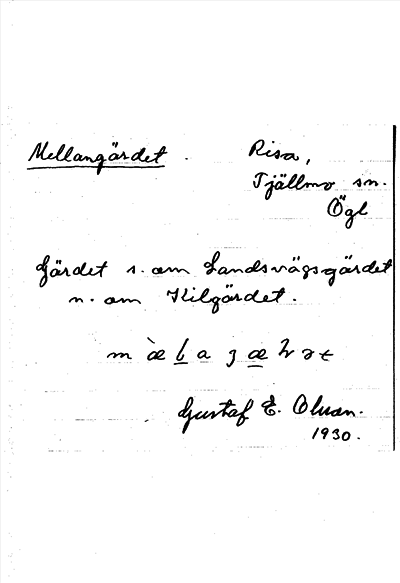 Mellangärdet. Risa,
Tjällmo sn.
Ögl
Gärdet s. om Landsvägsgärdet
n. om Kilgärdet.
Gustaf E. Olsson.
1930.